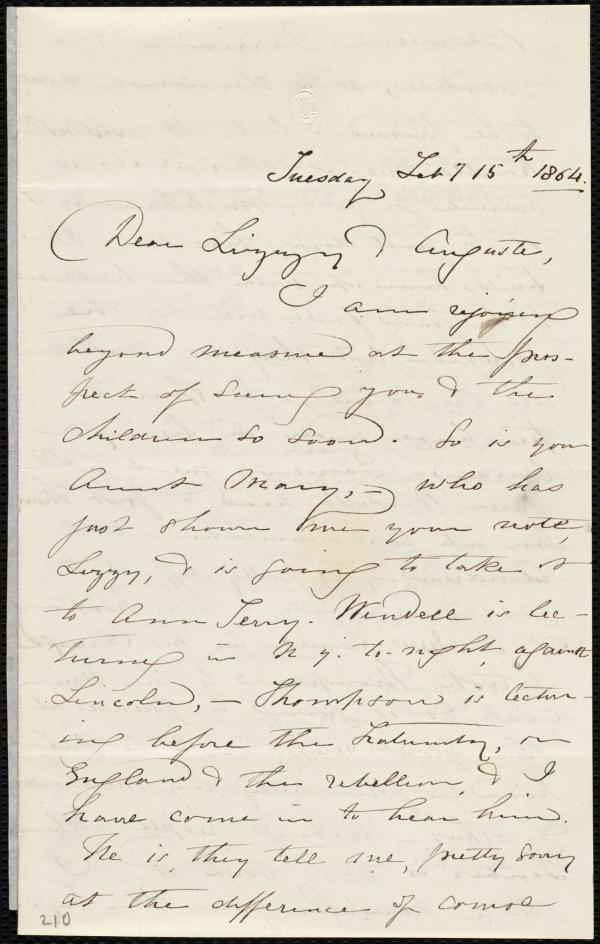 Tuesday Feb 7 15th 1864.
Dear Lizzy & Auguste,
I am rejoiced
beyond measure at the pros-
pect of seeing you & the
children so soon. So is your
Aunt Mary, - who has
just shown me your note,
Lizzy, & is going to take it
to Ann Terry. Wendell is lec-
turing in N.Y. to-night, against
Lincoln, - Thompson is lectur-
ing before the Fraternity, on
England & the rebellion, & I
have come in to hear him.
He is, they tell me, pretty sorry
at the difference of
210